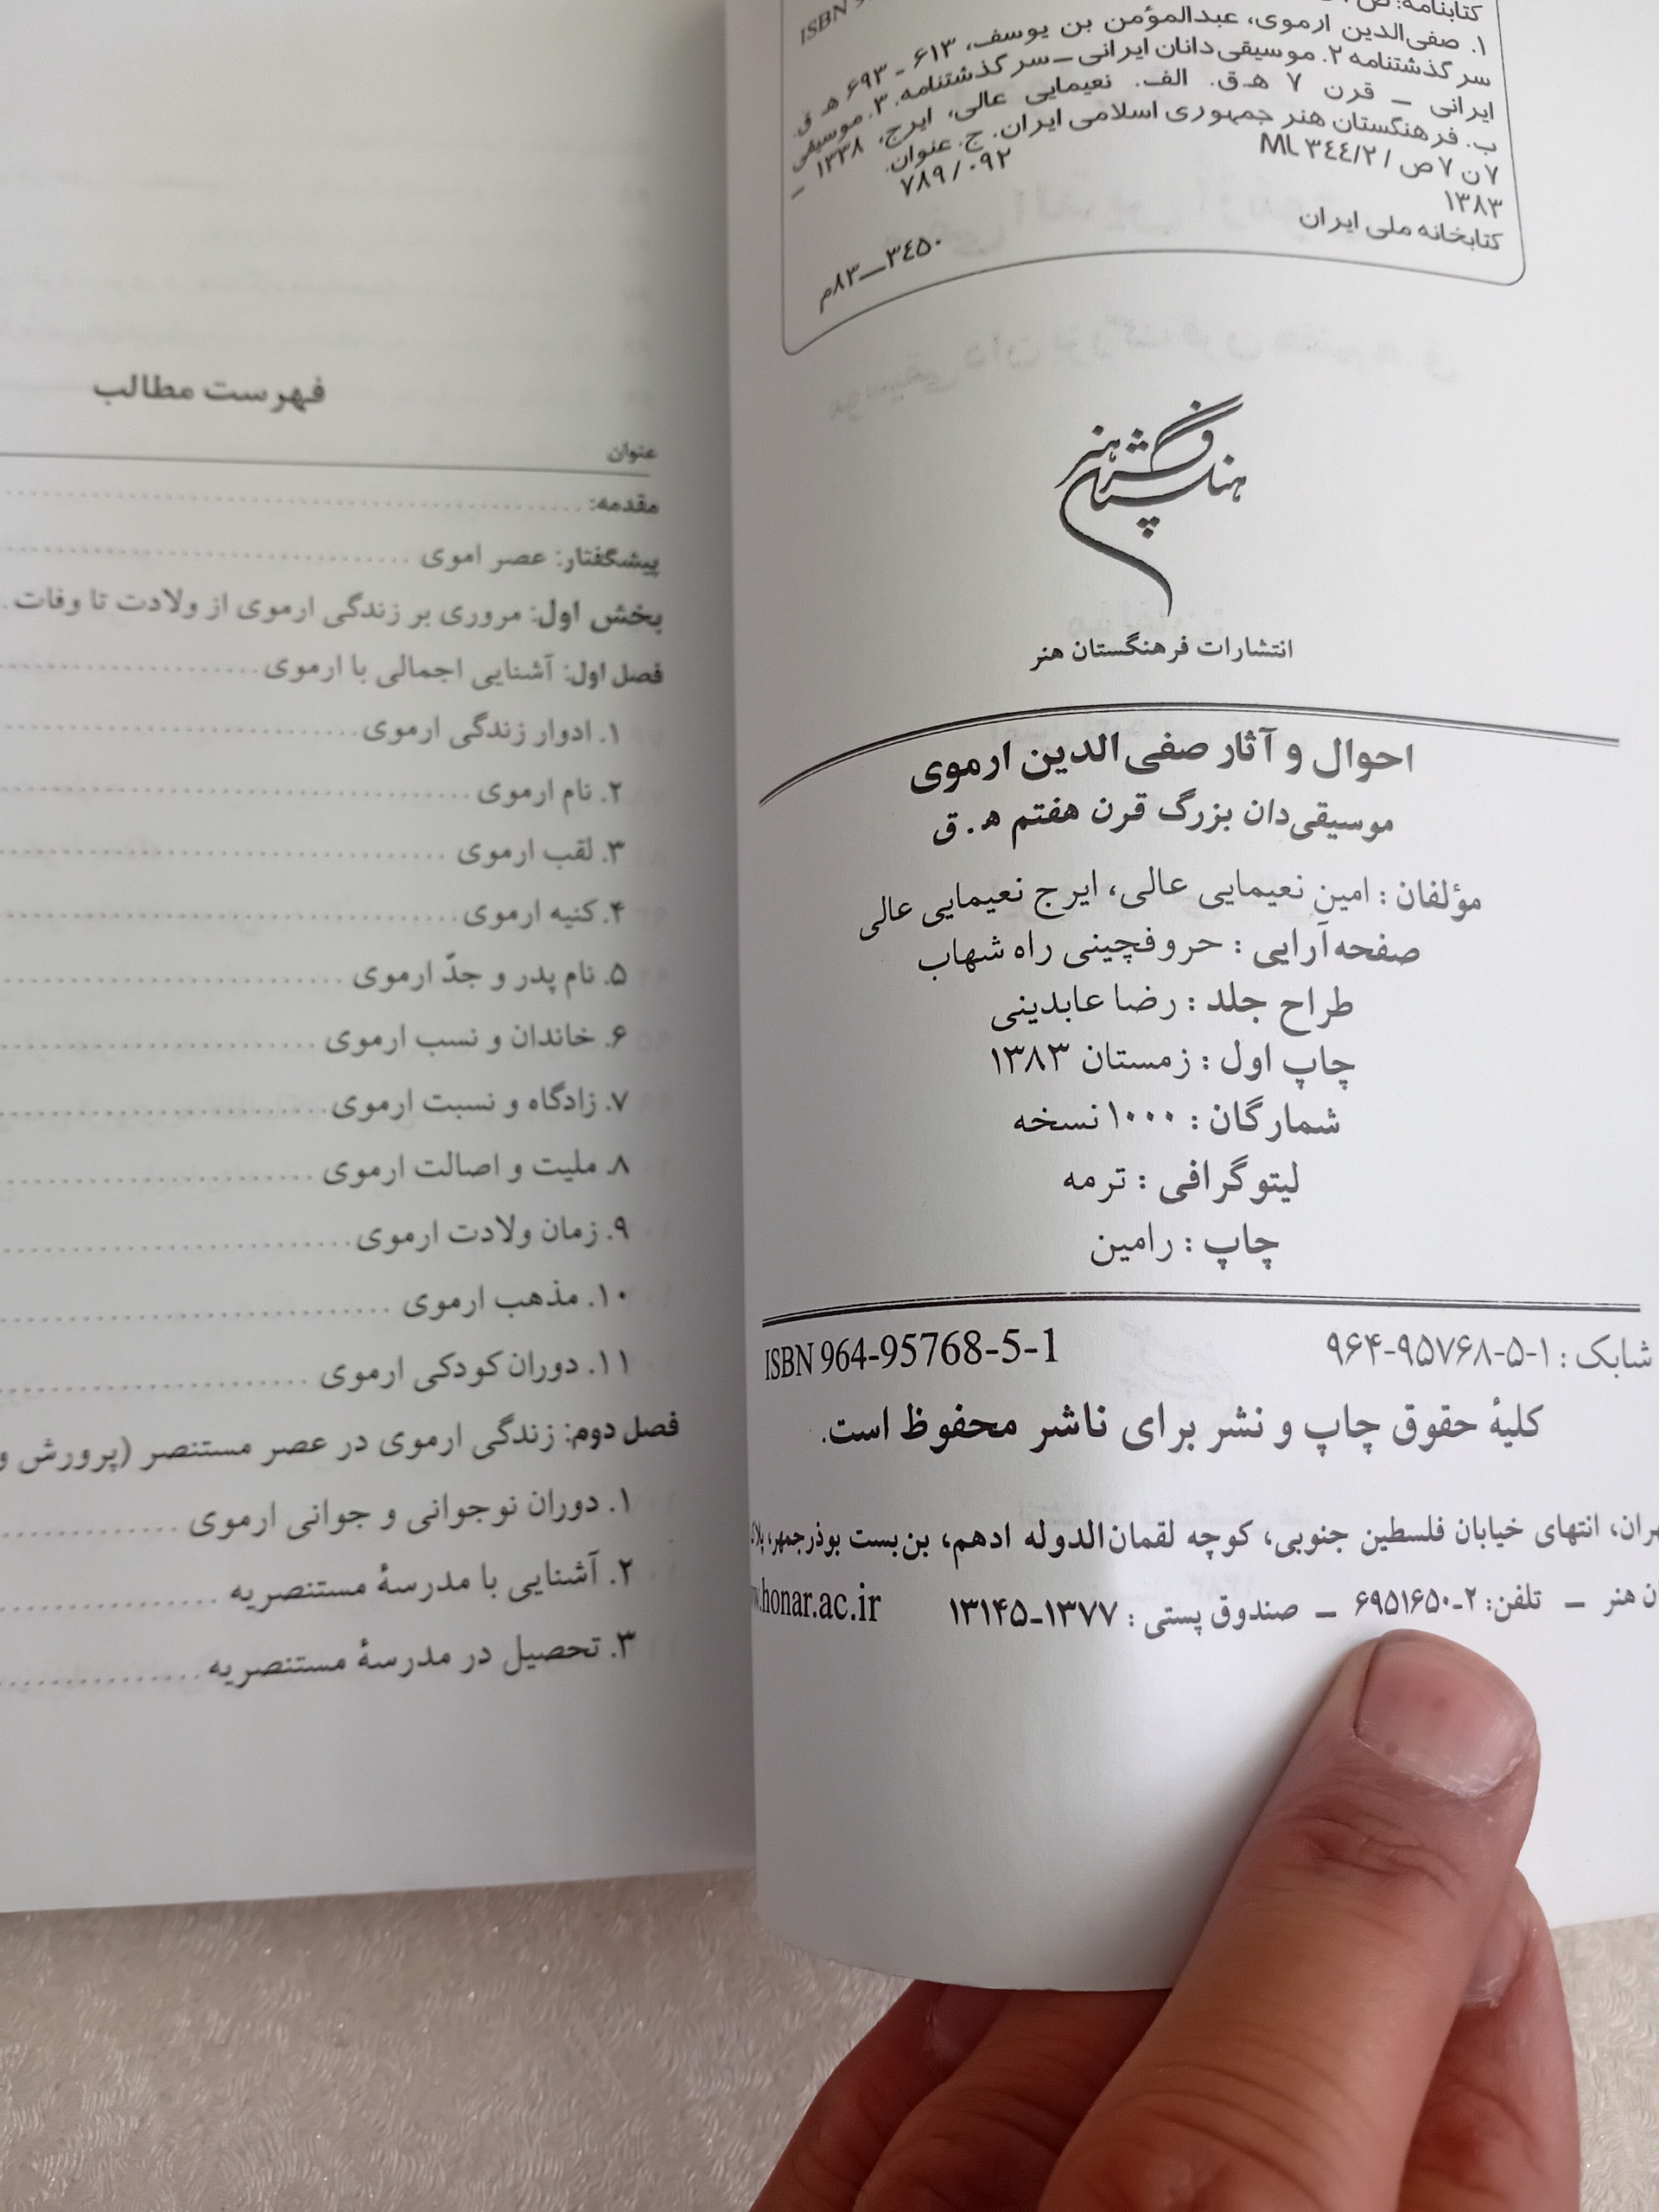 کتابنامه: ص
ISBN 9
۱. صفی‌الدین ارموی، عبدالمؤمن بن یوسف، ۶۱۳ - ۶۹۳ ه‍ ق.
سرگذشتنامه ۲. موسیقی‌دانان ایرانی ــ سرگذشتنامه. ۳. موسیقی
ایرانی ــ قرن ۷ ه‍.ق. الف. نعیمایی عالی، ایرج، ۱۳۳۸ ــ
ب. فرهنگستان هنر جمهوری اسلامی ایران. ج. عنوان.
۷ن ۷ص / ML ۳٤٤/۲
۷۸۹/۰۹۲
۱۳۸۳
کتابخانه ملی ایران
۳٤۵۰ــ۸۳م
فرهنگستان هنر
انتشارات فرهنگستان هنر
احوال و آثار صفی‌الدین ارموی
موسیقی‌دان بزرگ قرن هفتم ه‍ . ق
مؤلفان : امین نعیمایی عالی، ایرج نعیمایی عالی
صفحه‌آرایی : حروفچینی راه شهاب
طراح جلد : رضا عابدینی
چاپ اول : زمستان ۱۳۸۳
شمارگان : ۱۰۰۰ نسخه
لیتوگرافی : ترمه
چاپ : رامین
شابک : ۱-۵-۹۵۷۶۸-۹۶۴
ISBN 964-95768-5-1
کلیهٔ حقوق چاپ و نشر برای ناشر محفوظ است.
هران، انتهای خیابان فلسطین جنوبی، کوچه لقمان‌الدوله ادهم، بن‌بست بوذرجمهر، پلاک
ن هنر ــ تلفن: ۲-۶۹۵۱۶۵۰ ــ صندوق پستی : ۱۳۷۷-۱۳۱۴۵
.honar.ac.ir
فهرست مطالب
عنوان
مقدمه: ..............................
پیشگفتار: عصر اموی ..............................
بخش اول: مروری بر زندگی ارموی از ولادت تا وفات .
فصل اول: آشنایی اجمالی با ارموی ..............................
۱. ادوار زندگی ارموی ..............................
۲. نام ارموی ..............................
۳. لقب ارموی ..............................
۴. کنیه ارموی ..............................
۵. نام پدر و جدّ ارموی ..............................
۶. خاندان و نسب ارموی ..............................
۷. زادگاه و نسبت ارموی ..............................
۸. ملیت و اصالت ارموی ..............................
۹. زمان ولادت ارموی ..............................
۱۰. مذهب ارموی ..............................
۱۱. دوران کودکی ارموی ..............................
فصل دوم: زندگی ارموی در عصر مستنصر (پرورش و
۱. دوران نوجوانی و جوانی ارموی ..............................
۲. آشنایی با مدرسهٔ مستنصریه ..............................
۳. تحصیل در مدرسهٔ مستنصریه ..............................